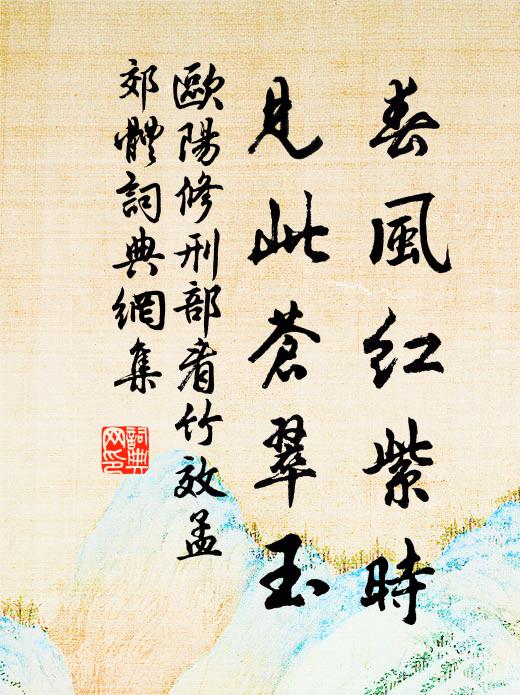 春風紅紫時
見此蒼翠玉
歐陽修刑部看竹效孟
郊體詞典網集
詞典
网印